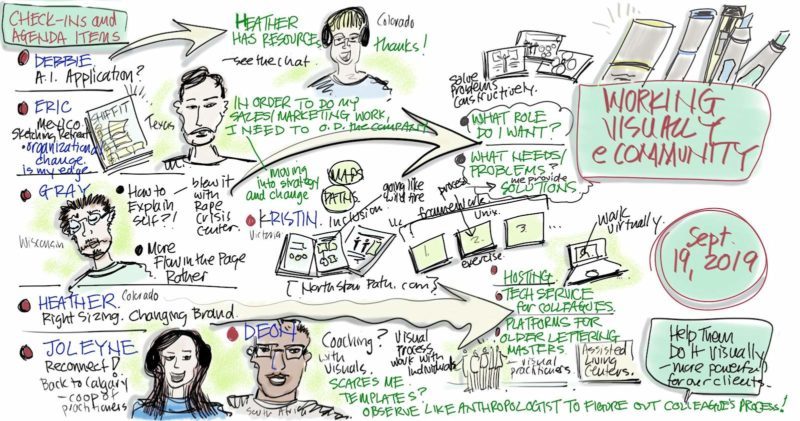 CHECK-INS and
AGENDA ITEMS
DEBBIE
A.I. Application?
HEATHER
HAS RESOURCES
see the chat.
Colorado
thanks!
ERIC
Mexico
Sketching Retreat
organizational
change
is my edge
SHIFT IT
Texas
IN ORDER TO DO MY
SALES/MARKETING WORK,
I NEED TO O.D. the COMPANY
moving
into strategy
and change
GRAY
Wisconsin
How to
Explain
self?!
blew it
with
Rape
Crisis
Center.
More
Flow in the Page
Rother
KRISTIN
Victoria
inclusion
MAPS
PATHS
going like
wild fire
[NorthStar Path.com]
process
frameworks
1.
2.
3.
exercise
solve
problems
constructively.
WHAT ROLE
DO I WANT?
WHAT NEEDS/
PROBLEMS?
we provide
SOLUTIONS
WORKING
VISUALLY
eCOMMUNITY
Sept.
19, 2019
work
virtually.
HOSTING
TECH SERVICE
for COLLEAGUES
PLATFORMS FOR
OLDER LETTERING
MASTERS
visual
practitioners
Assisted
Living
Centers.
HEATHER
Colorado
Right Sizing. Changing Brand.
JOLEYNE
Reconnect!
Back to Calgary
co-op of
practitioners
DEON
South Africa
Coaching?
with
visuals.
visual
process
work with
individuals
SCARES ME
TEMPLATES?
OBSERVE LIKE ANTHROPOLOGIST TO FIGURE OUT COLLEAGUE'S PROCESS!
Help Them
Do It Visually
more powerful
for our clients.